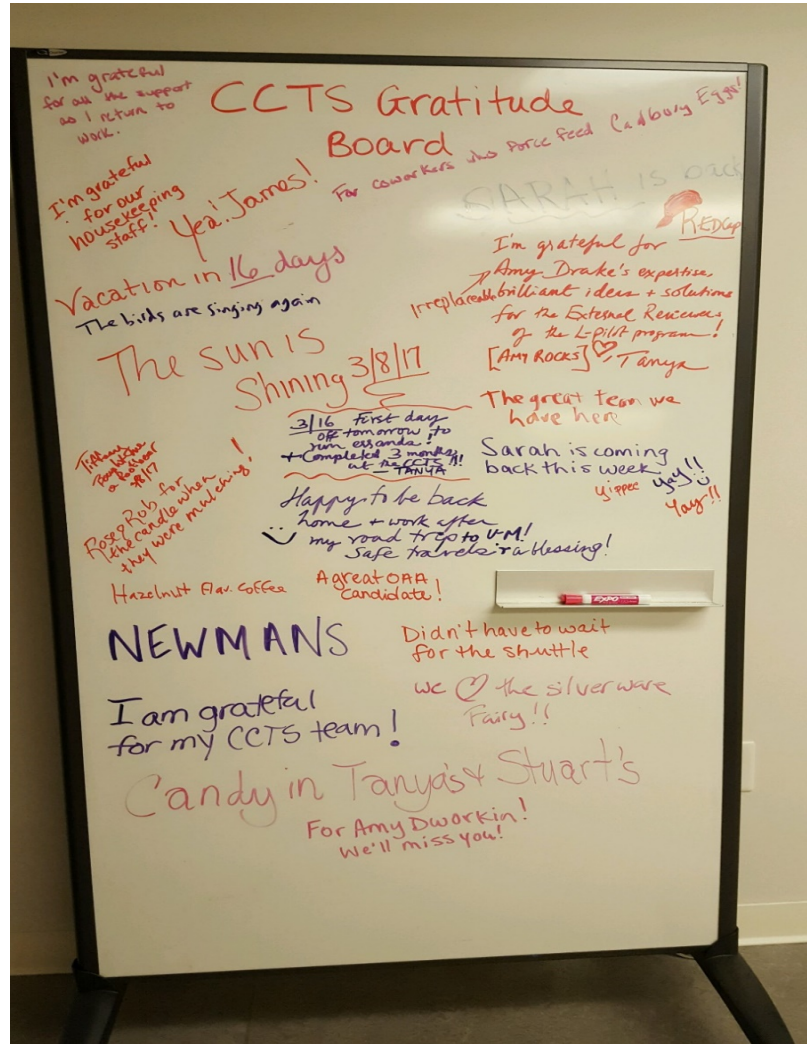 I'm grateful
for all the support
as I return to
work.
CCTS Gratitude
Board
For coworkers who force feed Cadbury Eggs!
I'm grateful
for our
housekeeping
staff!
Yea! James!
SARAH is back
REDCap
Vacation in 16 days
The birds are singing again
I'm grateful for
Amy Drake's expertise,
Irreplaceable brilliant ideas + solutions
for the External Reviewers
of the L-pilot program!
[AMY ROCKS] Tanya
The sun is
Shining 3/8/17
The great team we
have here
3/16 First day
off tomorrow to
run errands!
+ Completed 3 months
at the CCTS!!!
TANYA
Sarah is coming
back this week
Yippee Yay!!
Yay!!
Tiffany
3/8/17
Rose & Rob for
the candle when
they were mulching!
Happy to be back
home + work after
my road trip to UM!
Safe travels r a blessing!
Hazelnut Flav. Coffee
A great OAA
Candidate!
EXPO
NEWMANS
Didn't have to wait
for the shuttle
I am grateful
for my CCTS team!
We ♡ the silverware
Fairy!!
Candy in Tanya's & Stuart's
For Amy Dworkin!
We'll miss you!